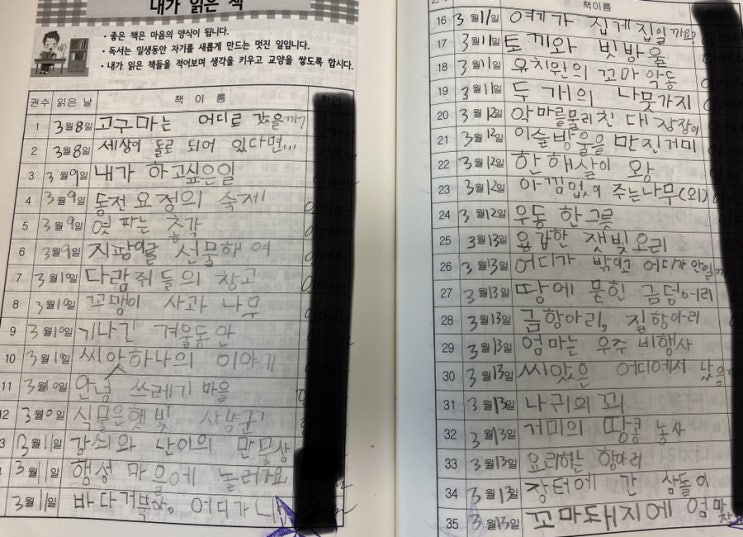 내가 읽은 책
• 좋은 책은 마음의 양식이 됩니다.
• 독서는 일생동안 자기를 새롭게 만드는 멋진 일입니다.
• 내가 읽은 책들을 적어보며 생각을 키우고 교양을 쌓도록 합시다.
권수 읽은 날 책 이름
1 3월8일 고구마는 어디로 갔을까?
2 3월8일 세상이 돌로 되어 있다면...
3 3월9일 내가 하고싶은일
4 3월9일 동전 요정의 숙제
5 3월9일 엿 파는 총각
6 3월9일 지팡이를 선물해 여
7 3월10일 다람쥐들의 창고
8 3월10일 꼬맹이 사과 나무
9 3월10일 기나긴 겨울동안
10 3월1일 씨앗하나의 이야기
11 3월10일 안녕 쓰레기 마을
12 3월10일 식물은햇빛 사냥꾼
3 3월11일 강쇠와 난이의 만물상
3월11일 행성 마을에 놀러와요
3월11일 바다거북아, 어디가니
책이름
16 3월11일 여기가 집게집일까요
17 3월11일 토끼와 빗방울
18 3월11일 유치원의 꼬마 악동
19 3월11일 두 개의 나뭇가지
20 3월12일 악마를물리친 대장장이
21 3월12일 이슬방울을 만진거미
22 3월12일 한해살이 왕
23 3월12일 아낌없이 주는나무(외)
24 3월12일 우동 한그릇
25 3월13일 용감한 잿빛오리
26 3월13일 어디가 밖이고 어디가 안일까
27 3월13일 땅에 묻힌 금덩어리
28 3월13일 금항아리, 질항아리
29 3월13일 엄마는 우주 비행사
30 3월13일 씨앗은 어디에서 났을까
31 3월13일 나귀의 꾀
32 3월13일 거미의 땅콩 농사
33 3월13일 요리하는 항아리
34 3월13일 장터에 간 삼돌이
35 3월13일 꼬마돼지에 엄마